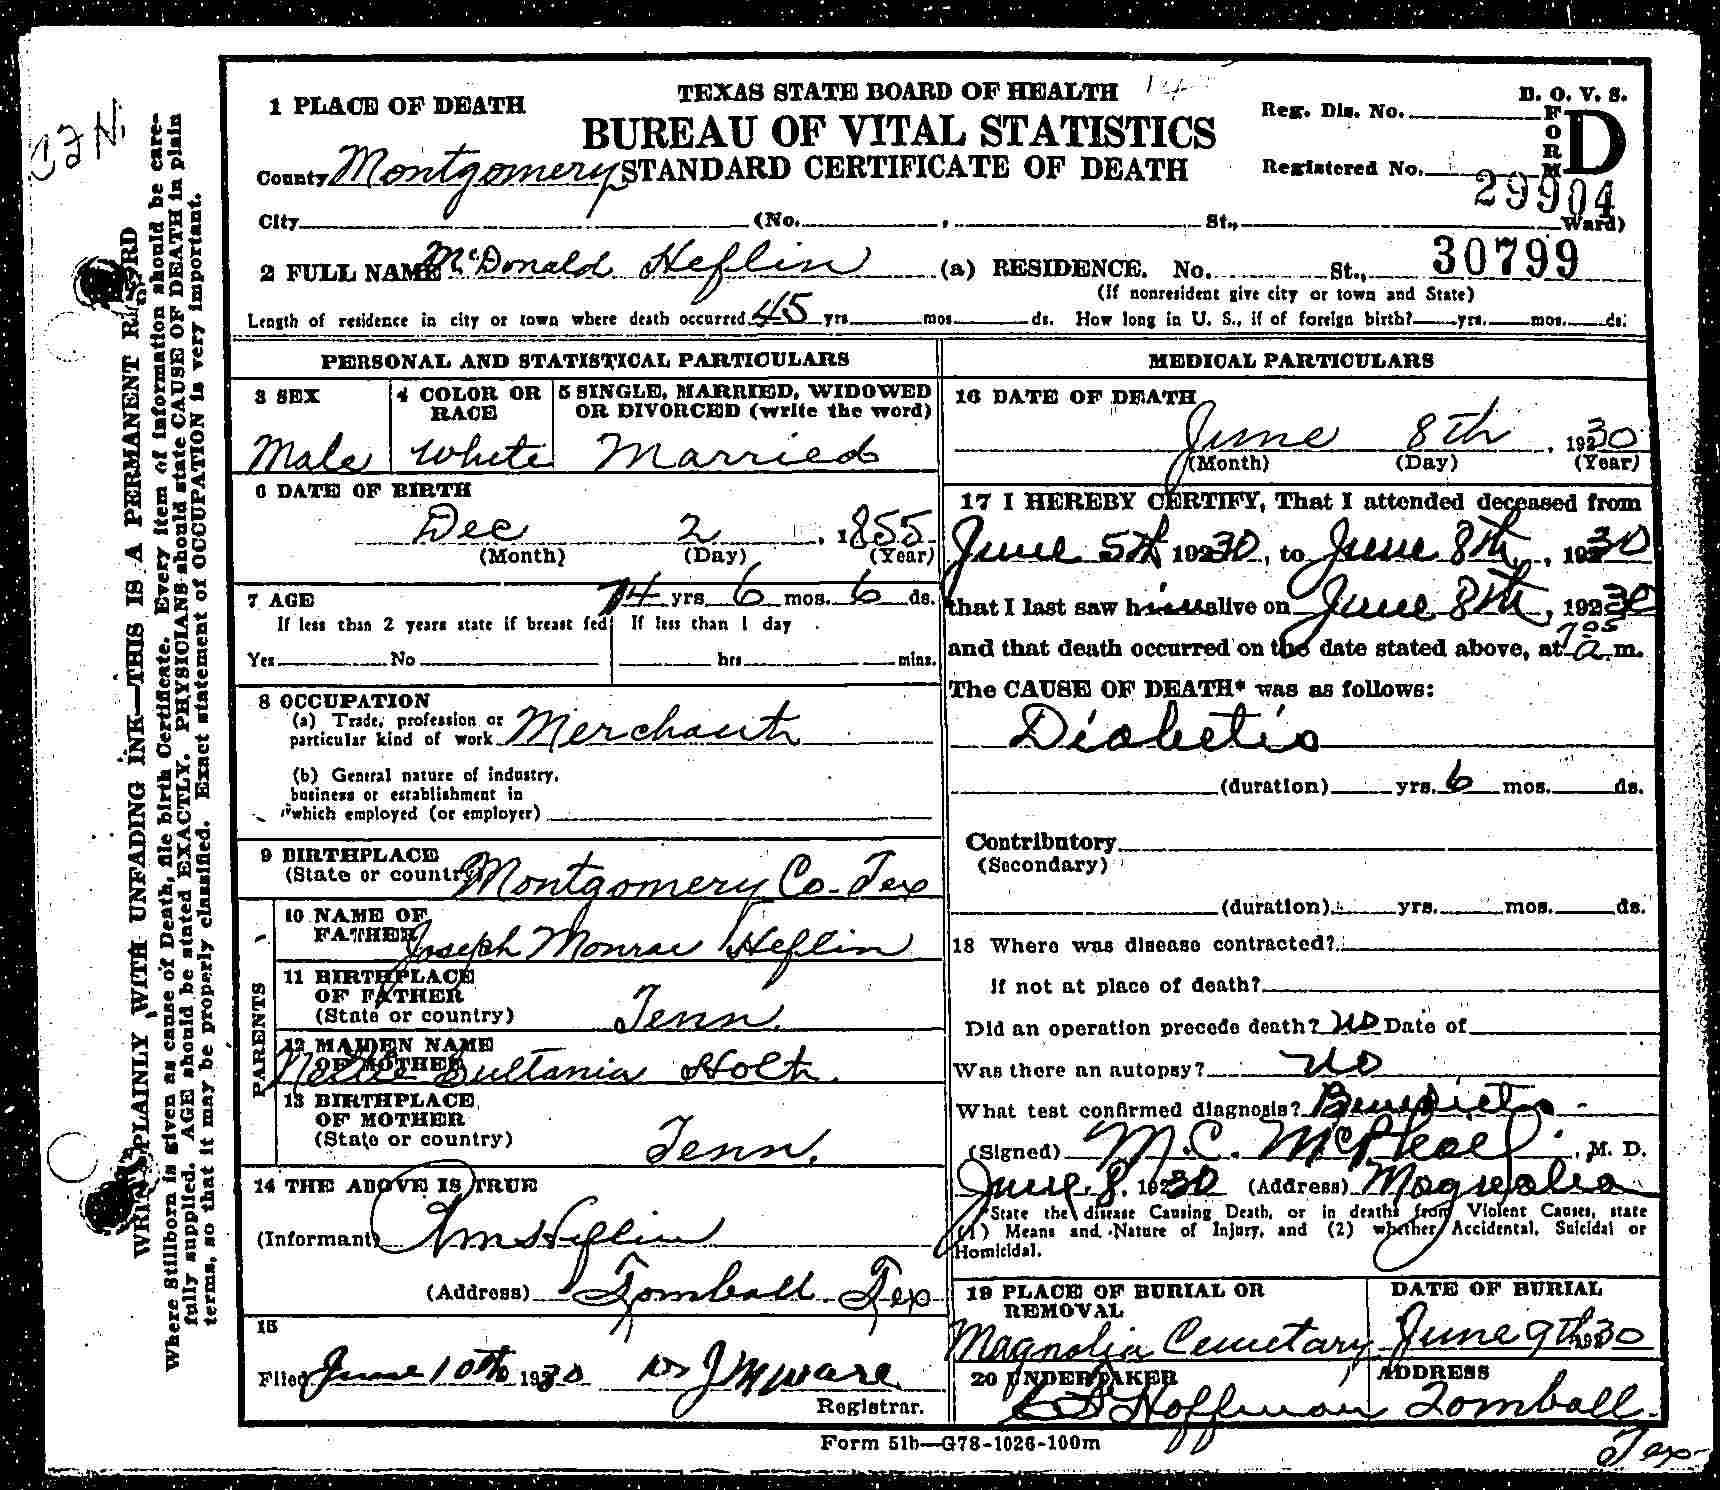 TEXAS STATE BOARD OF HEALTH 14
D. O. V. S.
1 PLACE OF DEATH
BUREAU OF VITAL STATISTICS
Reg. Dis. No.
FORM D
County Montgomery STANDARD CERTIFICATE OF DEATH
Registered No.
29904
City (No. , St., Ward)
30799
2 FULL NAME McDonald Heflin (a) RESIDENCE. No. St.,
(If nonresident give city or town and State)
Length of residence in city or town where death occurred 45 yrs. mos. ds. How long in U. S., if of foreign birth? yrs. mos. ds.
PERSONAL AND STATISTICAL PARTICULARS
3 SEX
Male
4 COLOR OR RACE
White
5 SINGLE, MARRIED, WIDOWED
OR DIVORCED (write the word)
Married
6 DATE OF BIRTH
Dec 2, 1855
(Month) (Day) (Year)
7 AGE 74 yrs. 6 mos. 6 ds.
If less than 2 years state if breast fed
Yes No
If less than 1 day
hrs. mins.
8 OCCUPATION
(a) Trade, profession or
particular kind of work Merchant
(b) General nature of industry,
business or establishment in
which employed (or employer)
9 BIRTHPLACE
(State or country) Montgomery Co. Tex
PARENTS
10 NAME OF
FATHER Joseph Monrae Heflin
11 BIRTHPLACE
OF FATHER
(State or country) Tenn.
12 MAIDEN NAME
OF MOTHER Nettie Sultania Holt.
13 BIRTHPLACE
OF MOTHER
(State or country) Tenn.
14 THE ABOVE IS TRUE
(Informant) Heflin
(Address) Tomball. Tex
15
Filed June 10th 1930 J M Ware
Registrar.
MEDICAL PARTICULARS
16 DATE OF DEATH
June 8th, 1930
(Month) (Day) (Year)
17 I HEREBY CERTIFY, That I attended deceased from
June 5th 1930, to June 8th, 1930
that I last saw him alive on June 8th, 1930
and that death occurred on the date stated above, at 7:05 a m.
The CAUSE OF DEATH* was as follows:
Diabetis
(duration) yrs. 6 mos. ds.
Contributory
(Secondary)
(duration) yrs. mos. ds.
18 Where was disease contracted?
If not at place of death?
Did an operation precede death? no Date of
Was there an autopsy? no
What test confirmed diagnosis? Benedicts
(Signed) M. C. , M. D.
June 8. 1930 (Address) Magnolia
*State the disease Causing Death, or in deaths from Violent Causes, state
(1) Means and Nature of Injury, and (2) whether Accidental, Suicidal or
Homicidal.
19 PLACE OF BURIAL OR
REMOVAL
Magnolia Cemetary
DATE OF BURIAL
June 9th 1930
20 UNDERTAKER
Hoffman
ADDRESS
Tomball.
Tex
Form 51b—G78-1026-100m
WRITE PLAINLY WITH UNFADING INK—THIS IS A PERMANENT RECORD
Where Stillborn is given as cause of Death, file birth Certificate. Every item of information should be care-
fully supplied. AGE should be stated EXACTLY. PHYSICIANS should state CAUSE OF DEATH in plain
terms, so that it may be properly classified. Exact statement of OCCUPATION is very important.